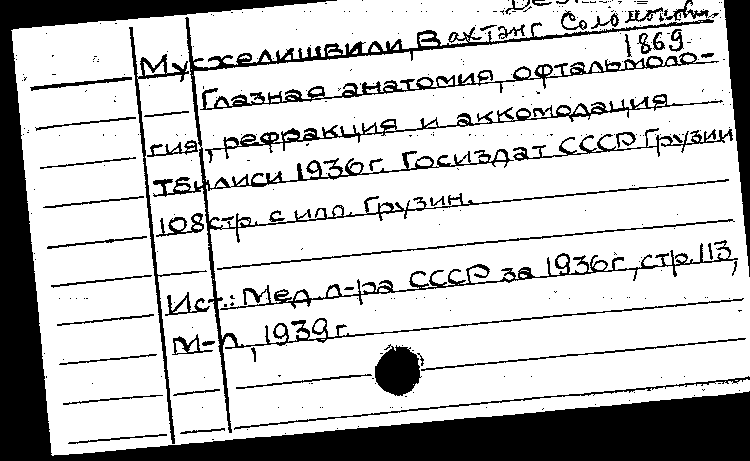 Мусхелишвили, Вахтанг Соломонович
1869
Глазная анатомия, офтальмоло-
гия, рефракция и аккомодация.
Тбилиси 1936г. Госиздат СССР Грузии
108 стр. с илл. Грузин.
Ист.: Мед. л-ра СССР за 1936г., стр. 113,
М-Л., 1939 г.